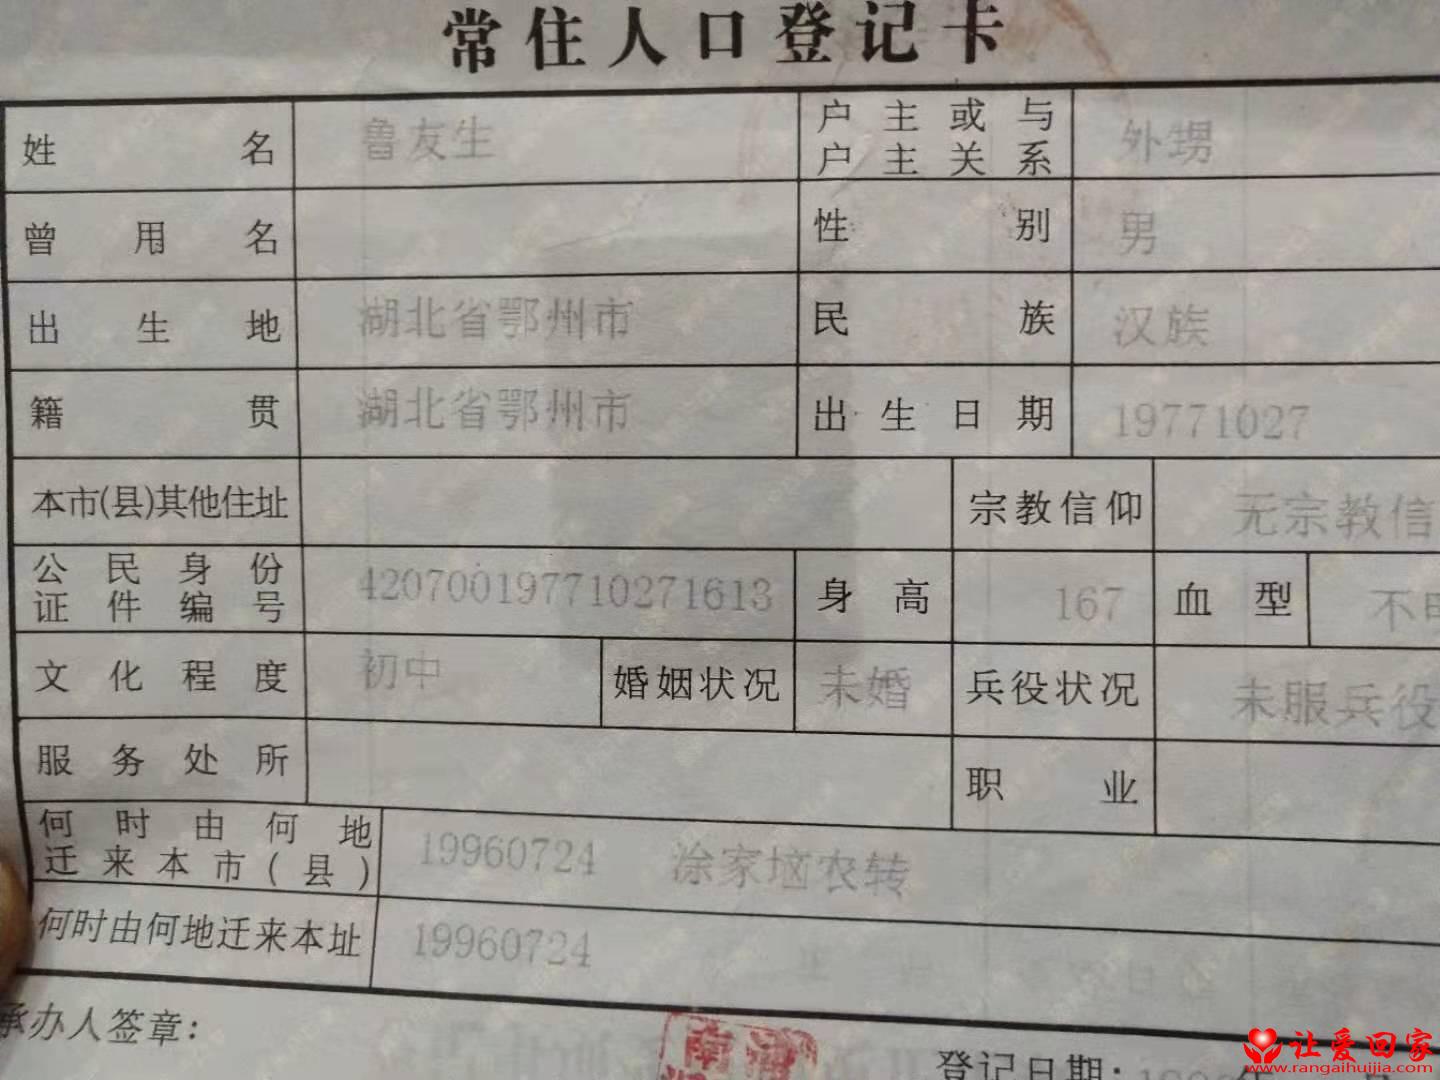 常住人口登记卡
姓名 鲁友生 户主或与户主关系 外甥
曾用名 性别 男
出生地 湖北省鄂州市 民族 汉族
籍贯 湖北省鄂州市 出生日期 19771027
本市(县)其他住址 宗教信仰 无宗教信
公民身份证件编号 420700197710271613 身高 167 血型 不明
文化程度 初中 婚姻状况 未婚 兵役状况 未服兵役
服务处所 职业
何时由何地迁来本市(县) 19960724 涂家垴农转
何时由何地迁来本址 19960724
承办人签章：
登记日期：
让爱回家
www.rangaihuijia.com